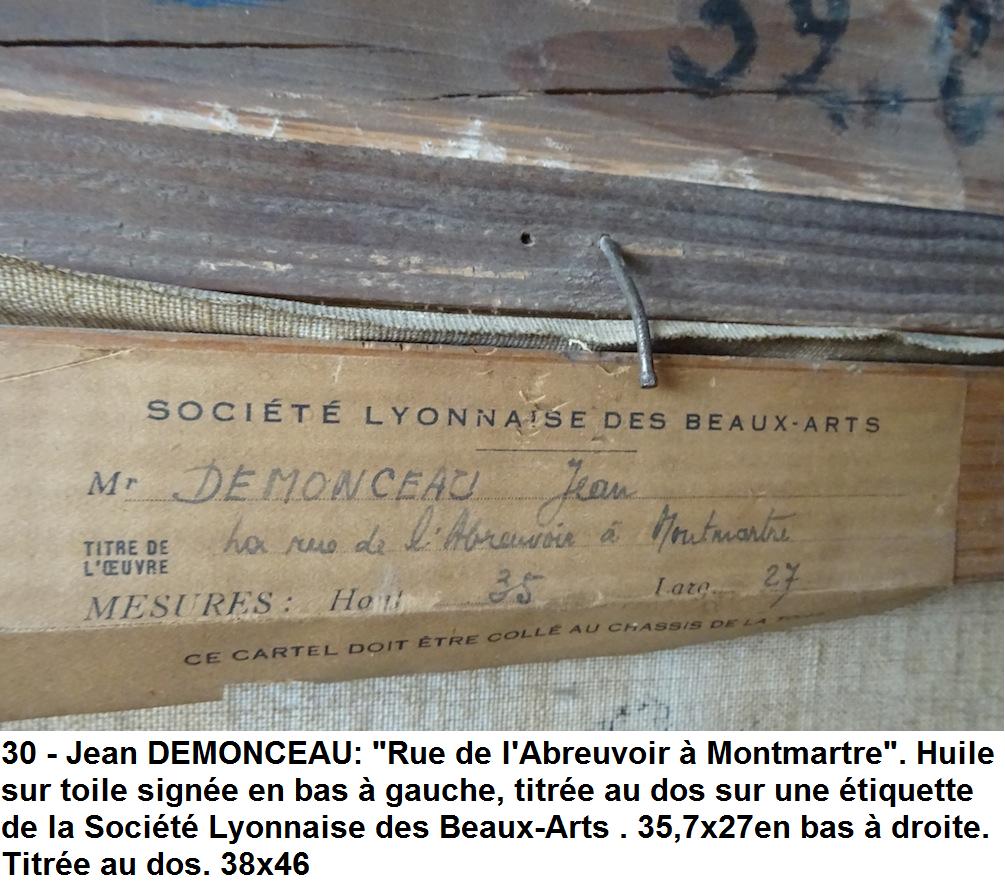 39
SOCIÉTÉ LYONNAISE DES BEAUX-ARTS
Mr DEMONCEAU Jean
TITRE DE L'ŒUVRE La rue de l'Abreuvoir à Montmartre
MESURES: Haut 35 Larg. 27
CE CARTEL DOIT ÊTRE COLLÉ AU CHASSIS DE LA
30 - Jean DEMONCEAU: "Rue de l'Abreuvoir à Montmartre". Huile
sur toile signée en bas à gauche, titrée au dos sur une étiquette
de la Société Lyonnaise des Beaux-Arts . 35,7x27en bas à droite.
Titrée au dos. 38x46